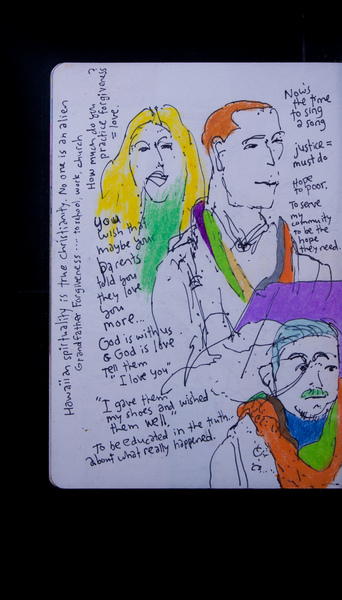 Hawaiian spirituality is true Christianity. No one is an alien
Grandfather Forgiveness .... to school, work, church
How much do you ?
practice forgiveness
= love.
you
wish that
maybe your
parents
told you
they love
you
more...
God is with us
& God is love
Tell them
"I love you"
"I gave them
my shoes and wished
them well"
To be educated in the truth...
about what really happened.
Now's
the time
to sing
a song
justice =
must do
Hope
to poor,
To serve
my
community
to be the
hope
they need.